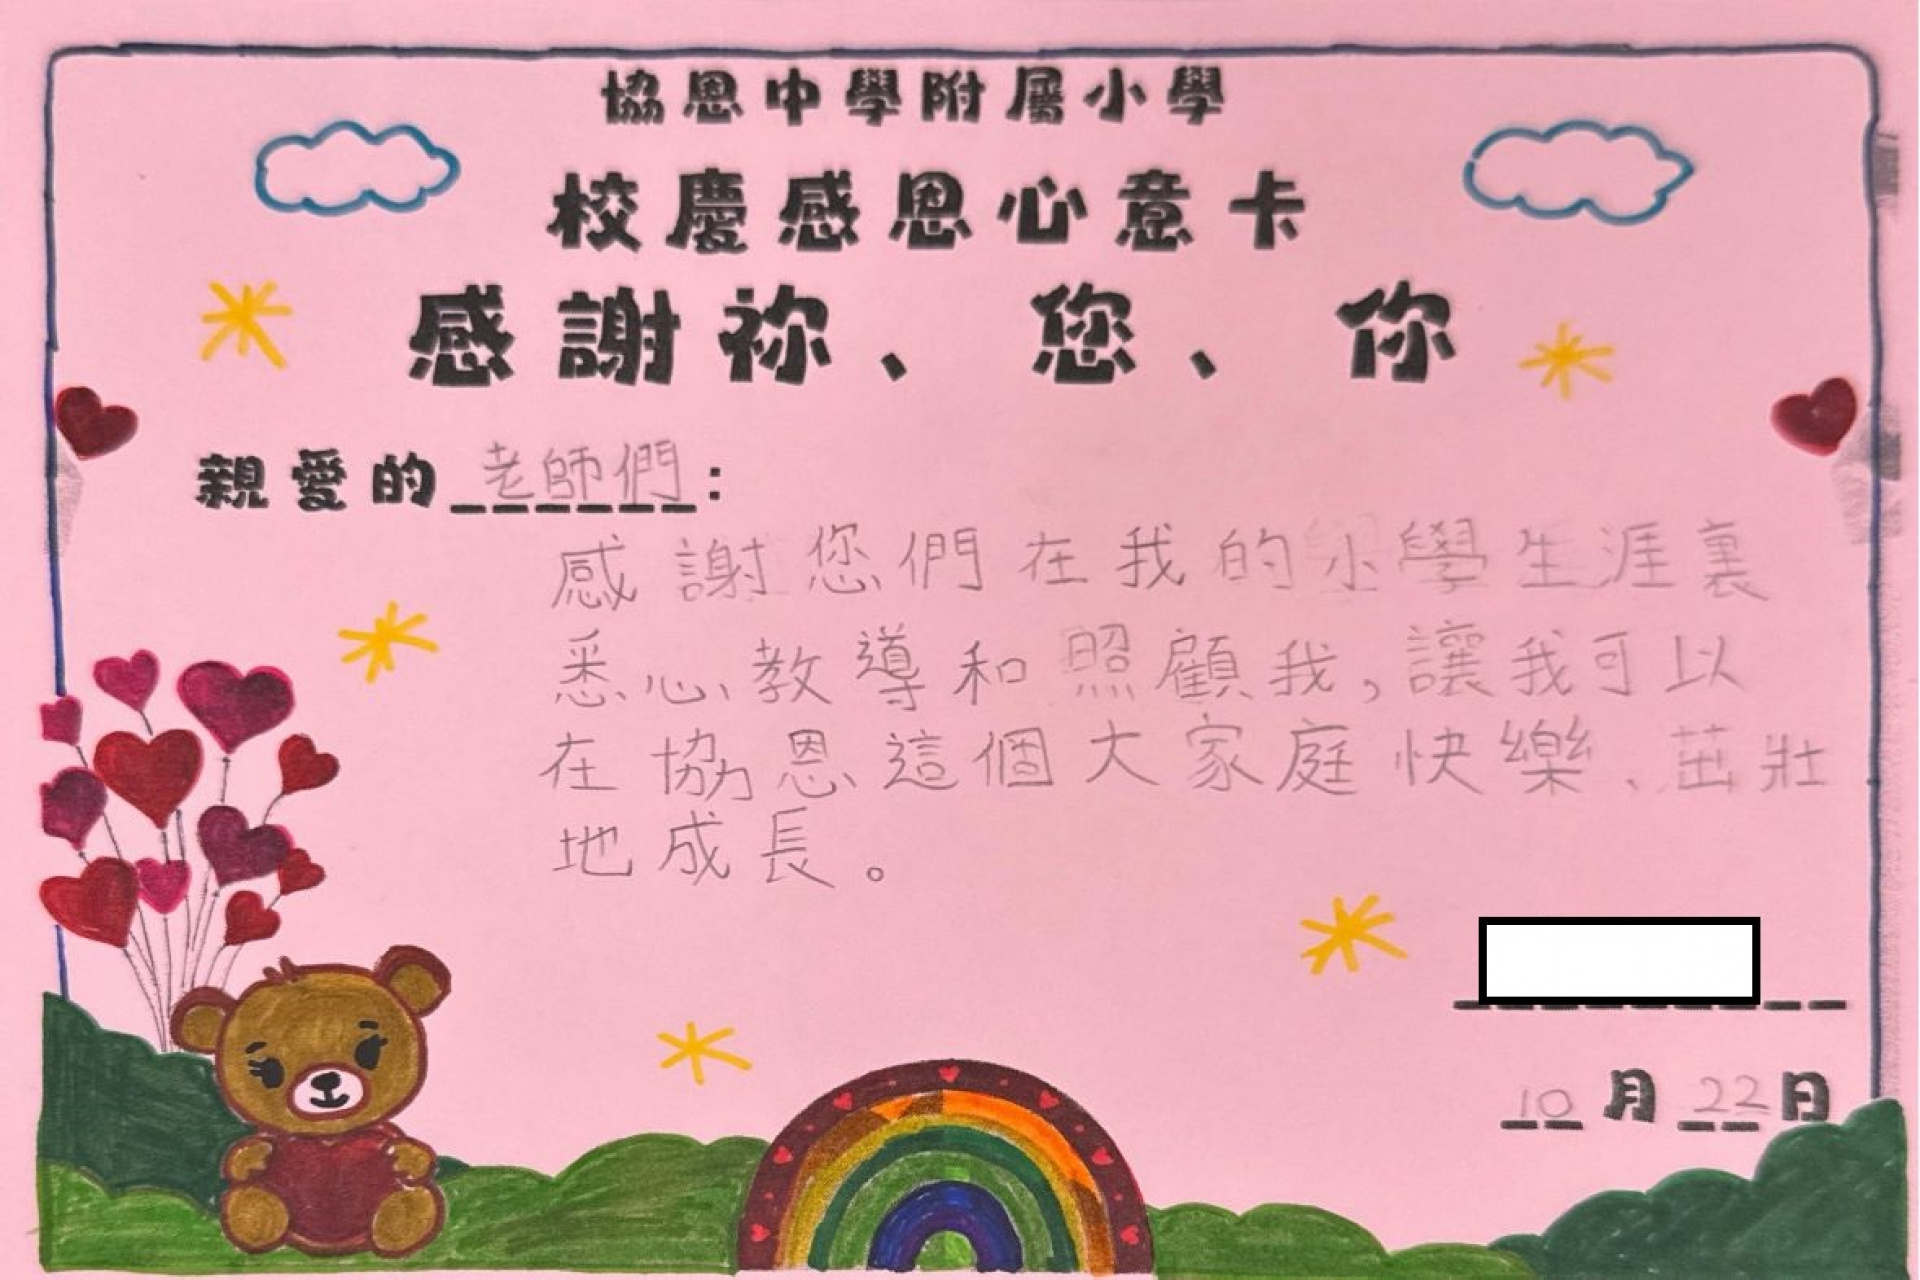 協恩中學附屬小學
校慶感恩心意卡
感謝祢、您、你
親愛的 老師們：
感謝您們在我的小學生涯裏
悉心教導和照顧我,讓我可以
在協恩這個大家庭快樂、茁壯
地成長。
10月22日